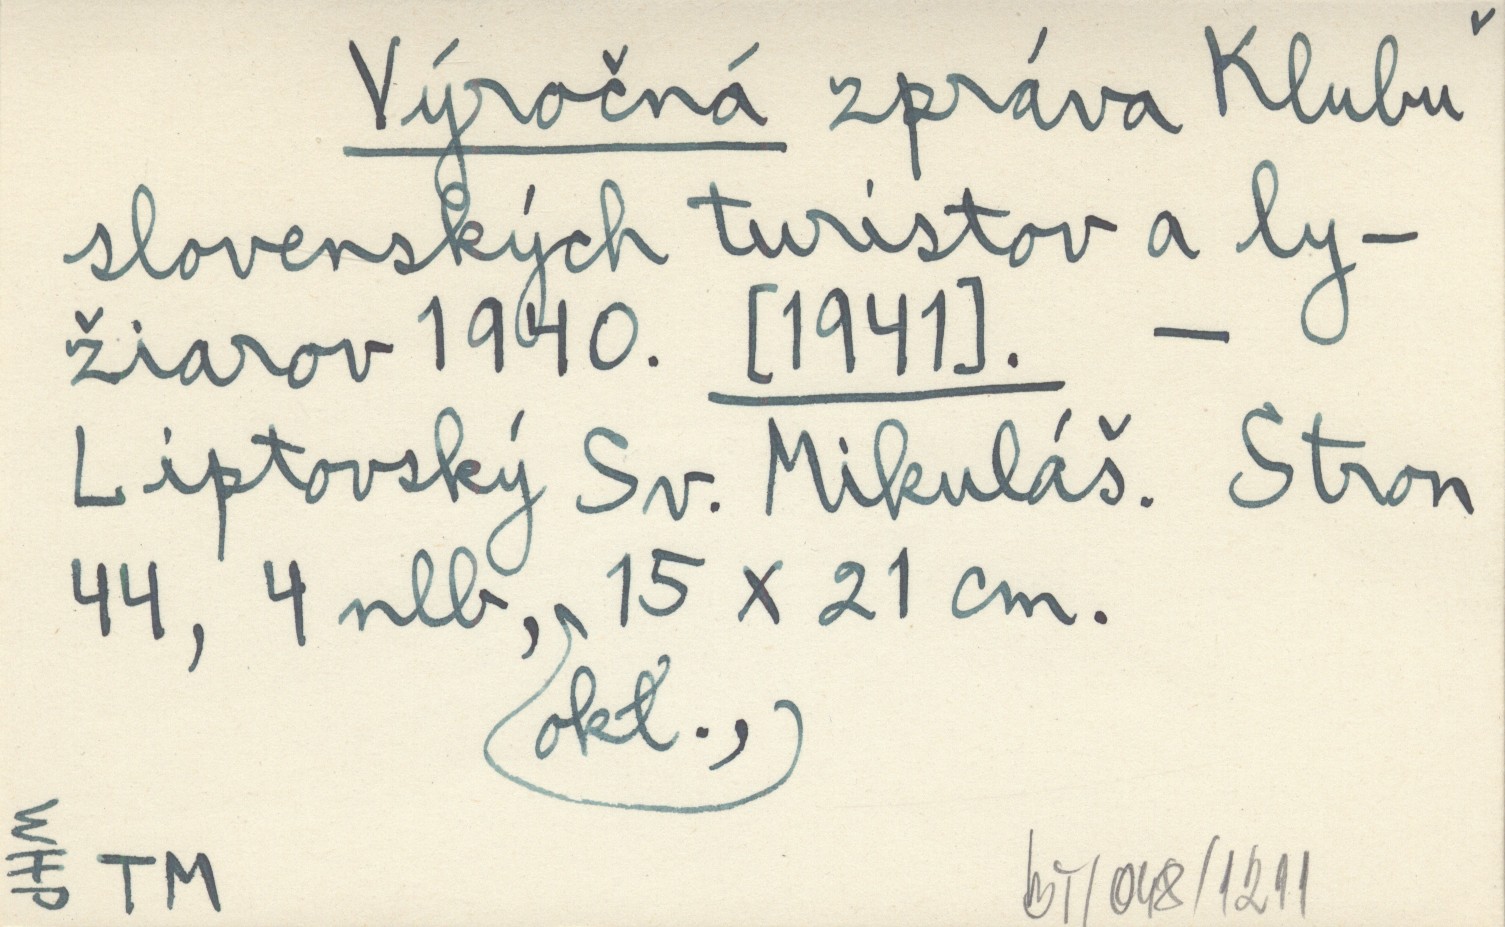 Výročná zpráva Klubu
slovenských turistov a ly-
žiarov 1940. [1941]. —
Liptovský Sv. Mikuláš. Stron
44, 4 nlb, 15 x 21 cm.
okł.,
WHP TM
048/1211